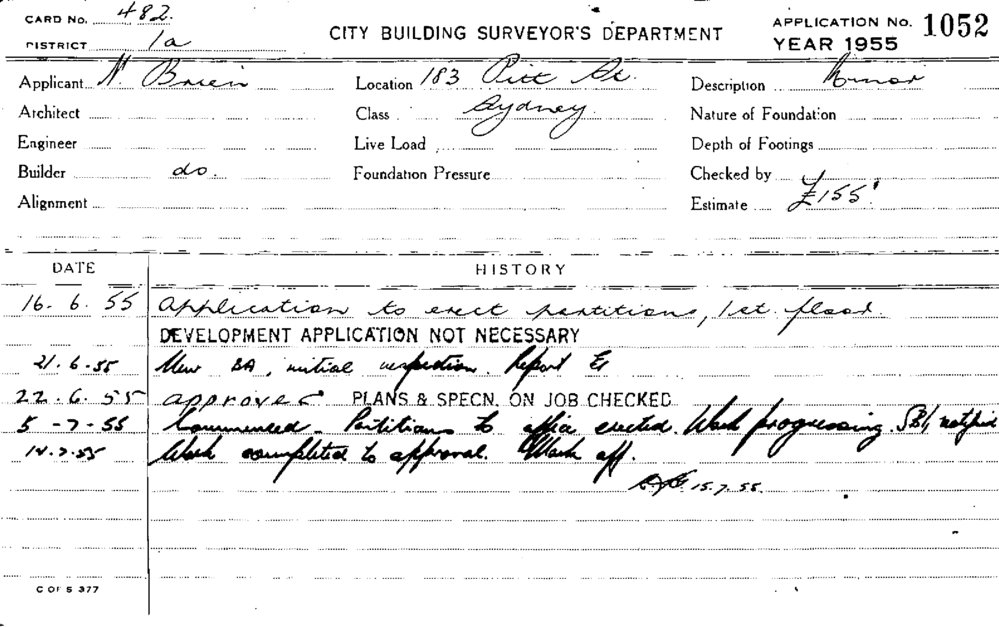 CARD No. 482.
DISTRICT 1a
CITY BUILDING SURVEYOR'S DEPARTMENT
APPLICATION No. 1052
YEAR 1955
Applicant N. Brien
Location 183 Pitt St.
Description Minor
Architect
Class Sydney.
Nature of Foundation
Engineer
Live Load
Depth of Footings
Builder do.
Foundation Pressure
Checked by
Alignment
Estimate £155'
DATE HISTORY
16. 6. 55 Application to erect partitions, 1st. floor.
DEVELOPMENT APPLICATION NOT NECESSARY
21. 6. 55 New BA, initial inspection. Report
22. 6. 55 approved PLANS & SPECN. ON JOB CHECKED
5 -7- 55 Commenced - Partitions to office erected. Work progressing. notified
14.7.55 Work completed to approval. Mark off.
15.7.55.
C OF S 377